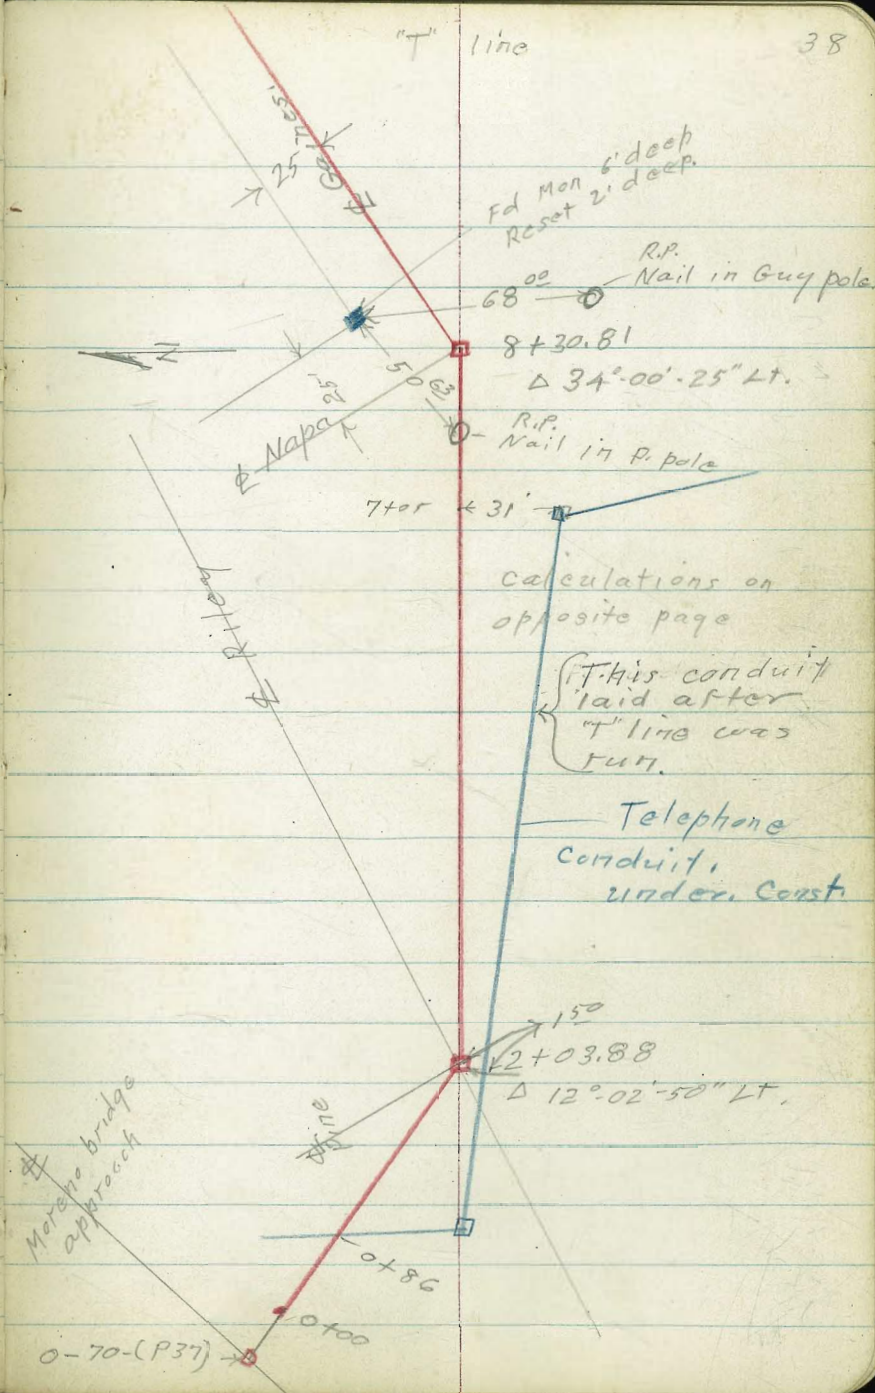 "T" line
38
25'
℄ Gaines
Fd Mon 6' deep
Reset 2' deep.
R.P.
Nail in Guy pole
68 00
N
8+30.81
Δ 34°-00'-25" Lt.
50 63
25'
℄ Napa
R.P.
Nail in P. pole
7+05
31'
Calculations on
opposite page
℄ Riley
This conduit
laid after
"T" line was
run.
Telephone
Conduit,
under. Const.
1 50
2+03.88
Δ 12°-02'-50" Lt.
Moreno bridge
approach
℄
0+86
0+00
0-70-(P37)